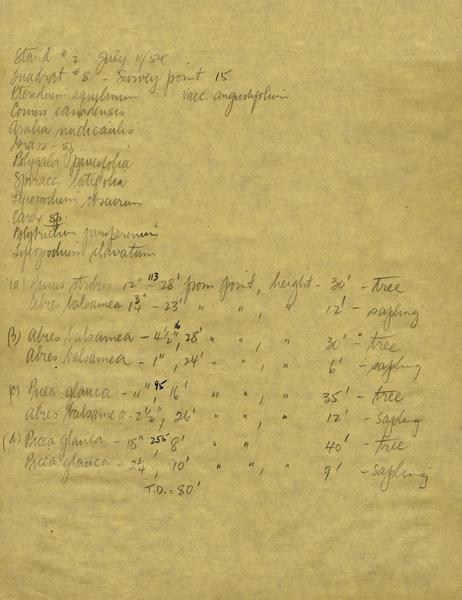 Stand # 2 July 11/54
Quadrat # 8 - Survey point 15
Pteridium aquilinum Vacc. angustifolium
Cornus canadensis
Aralia nudicaulis
Grass - sp
Polygala paucifolia
Spiraea latifolia
Lycopodium obscurum
Carex sp.
Polytrichum juniperinum
Lycopodium clavatum
(a) Pinus strobus 12" 113 - 28' from point, height - 30' - tree
Abies balsamea 1 3/4" - 23' " " , " 12' - sapling
(3) Abies balsamea - 4 1/2" 16, 28' " " , " 30' - tree
Abies balsamea - 1", 24' " " , " 6' - sapling
Picea glauca - 11" 95, 16' " " , " 35' - tree
Abies balsamea - 2 1/2", 26' " " , " 12' - sapling
Picea glauca - 18" 255 8' " " , " 40' - tree
Picea glauca - 2 1/4", 10' " " , " 9' - sapling
T.D. = 80'